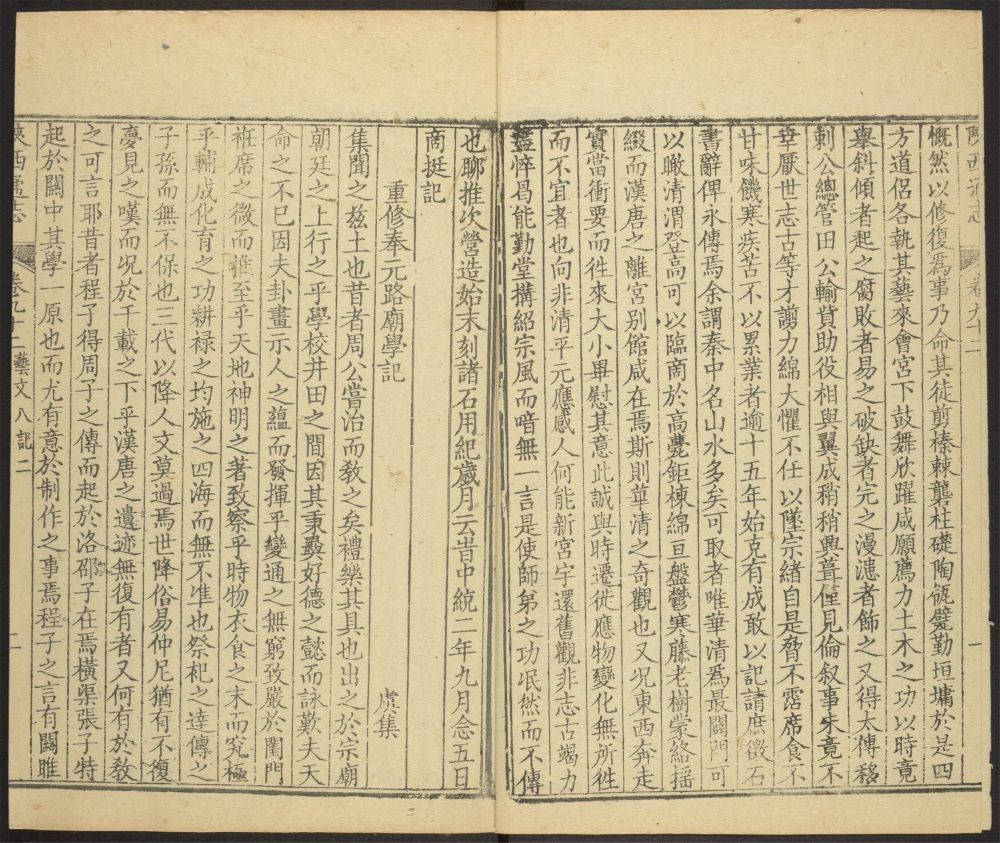 陝西通志 卷九十二 一
慨然以修復爲事乃命其徒剪榛棘礱柱礎陶瓴甓勤垣墉於是四
方道侣各執其藝來會宮下鼓舞欣躍咸願薦力土木之功以時竟
舉斜傾者起之腐敗者易之破缺者完之漫漶者飾之又得太傅移
剌公總管田公輸貲助役相與翼成稍稍興葺僅見倫叙事未竟不
幸厭世志古等才謭力綿大懼不任以墜宗緒自是脅不霑席食不
甘味饑寒疾苦不以累業者逾十五年始克有成敢以記請庶徵石
書辭俾永傳焉余謂秦中名山水多矣可取者唯華清爲最闢門可
以瞰清渭登高可以臨商於高甍鉅棟綿亘盤鬱寒藤老樹蒙絡摇
綴而漢唐之離宮别館咸在焉斯則華清之奇觀也又况東西奔走
實當衝要而徃來大小畢慰其意此誠與時遷徙應物變化無所徃
而不宜者也向非清平元應感人何能新宮宇還舊觀非志古竭力
盡悴曷能勤堂構紹宗風而喑無一言是使師弟之功泯然而不傳
也聊推次營造始末刻諸石用紀歲月云旹中統二年九月念五日
商挺記
重修奉元路廟學記 虞集
集聞之兹土也昔者周公嘗治而敎之矣禮樂其具也出之於宗廟
朝廷之上行之乎學校井田之間因其秉彝好德之懿而詠歎夫天
命之不已因夫卦畫示人之蘊而發揮乎變通之無窮致嚴於閨門
袵席之微而推至乎天地神明之著致察乎時物衣食之末而究極
乎輔成化育之功耕祿之均施之四海而無不凖也祭祀之達傳之
子孫而無不保也三代以降人文莫過焉世降俗易仲尼猶有不復
夣見之嘆而况於千載之下乎漢唐之遺迹無復有者又何有於敎
之可言耶昔者程子得周子之傳而起於洛邵子在焉横渠張子特
起於關中其學一原也而尤有意於制作之事焉程子之言有關雎
陝西通志 卷九十二 藝文八 記二 一